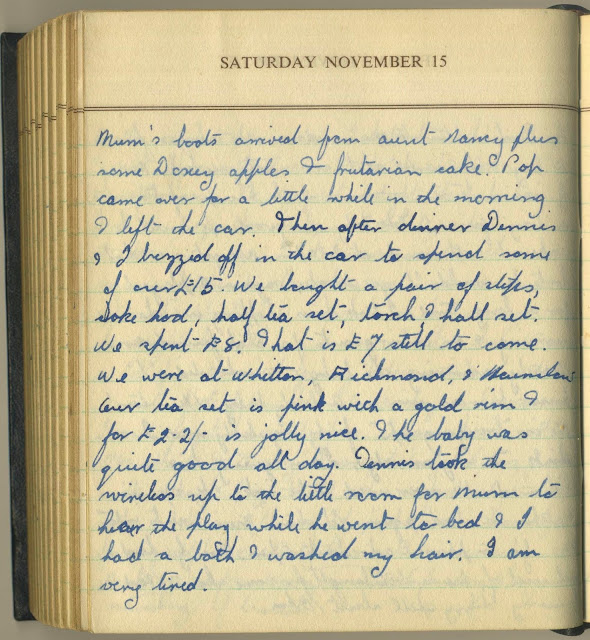 SATURDAY NOVEMBER 15
Mum's boots arrived from aunt Nancy plus
some Doxey apples & frutarian cake. Pop
came over for a little while in the morning
& left the car. Then after dinner Dennis
& I buzzed off in the car to spend some
of our £15. We bought a pair of steps,
coke hod, half tea set, torch, & hall set.
We spent £8. That is £7 still to come.
We were at Whitton, Richmond, & Hounslow
Our tea set is pink with a gold rim &
for £2-2/- is jolly nice. The baby was
quite good all day. Dennis took the
wireless up to the little room for Mum to
hear the play while he went to bed & I
had a bath & washed my hair. I am
very tired.